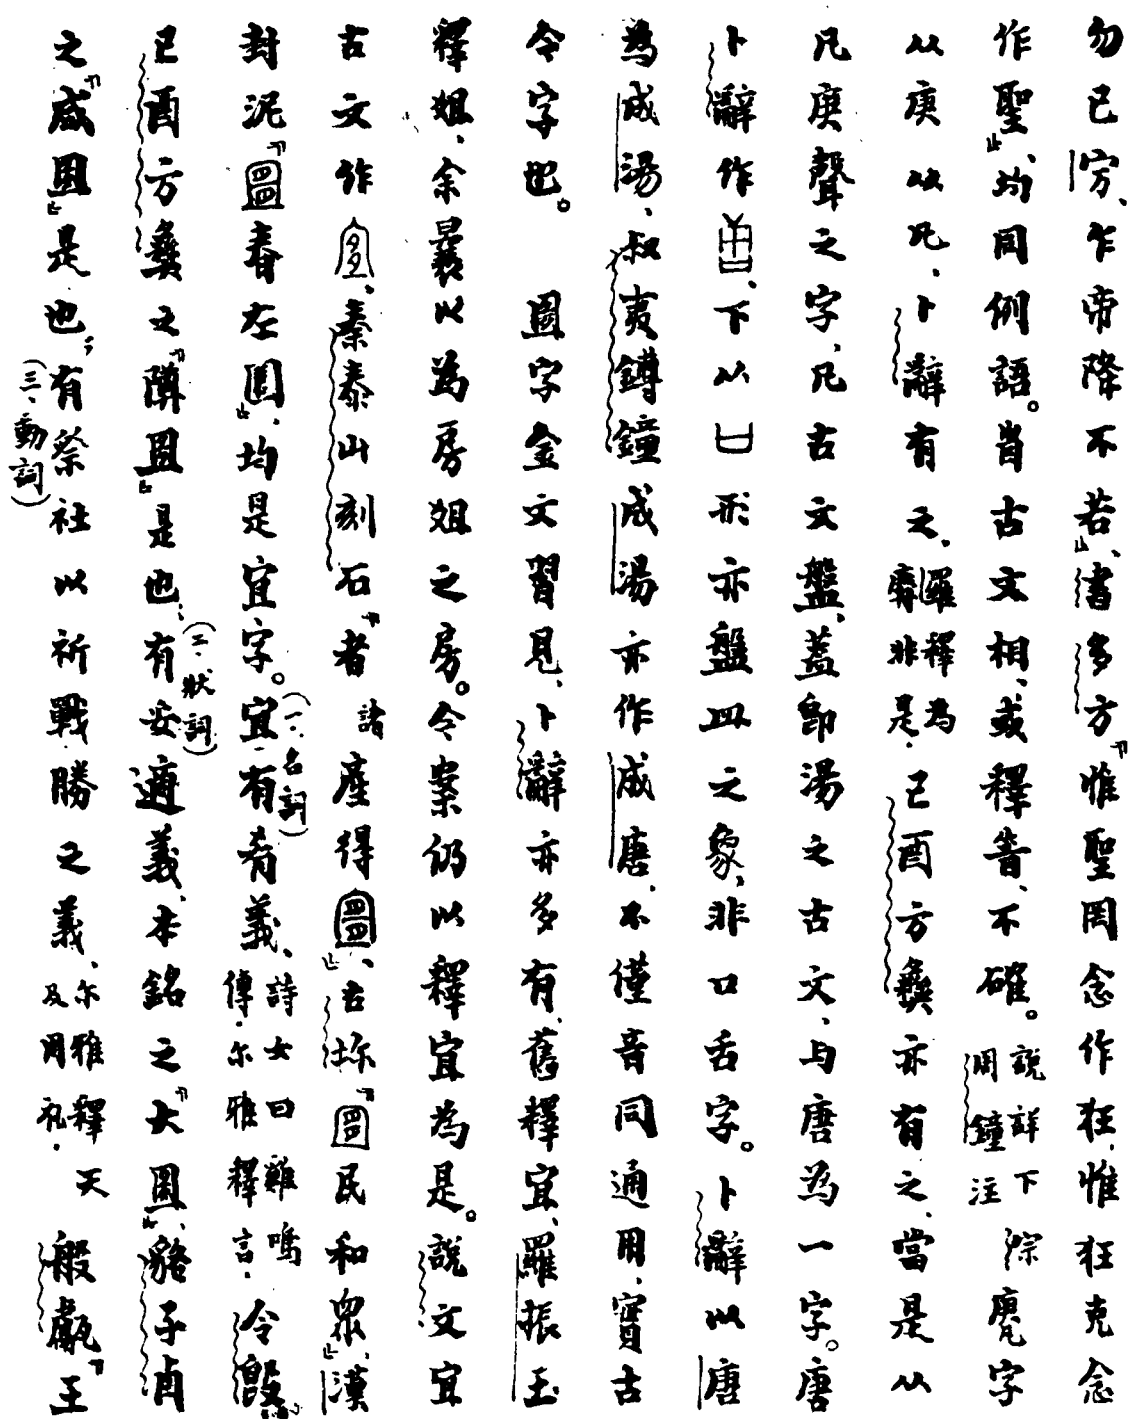 勿已㝑、乍帝降不若」、書多方「惟聖罔念作狂、惟狂克念
作聖」、均同例語。𡆥古文相、或釋眚、不確。說詳下周鐘注 淙 㡯字
从庚从凡、卜辭有之、羅釋為𩫏非是. 己酉方彝亦有之、當是从
凡庚聲之字、凡古文盤、蓋卽湯之古文、与唐為一字。唐
卜辭作、下从凵形亦盤皿之象、非口舌字。卜辭以唐
為成湯、叔夷鎛鐘成湯亦作成唐、不僅音同通用、實古
今字也。 圖字金文習見、卜辭亦多有、舊釋宜、羅振玉
釋俎、余曩以為房俎之房。今案仍以釋宜為是。說文宜
古文作、秦泰山刻石「者諸產得」、古鉨「民和眾」、漢
封泥「春左園」、均是宜字。宜有(一.名詞)肴義、詩女曰雞鳴傳.尔雅釋言. 令𣪘
己酉方彝之「𨻰宜」是也;(二.狀詞)有安適義、本銘之「大宜」、貉子卣
之「咸宜」是也;(三、動詞)有祭社以祈戰勝之義、尔雅釋天及周礼. 般甗「王